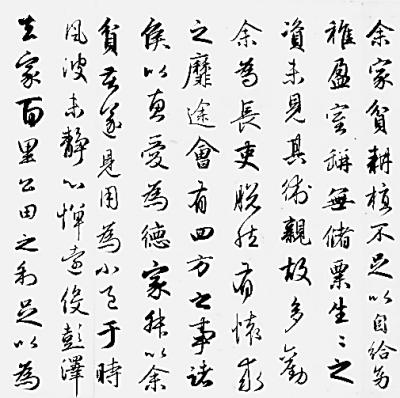 余家貧耕植不足以自給幼
稚盈室缾無儲粟生〻之
資未見其術親故多勸
余為長吏脫然有懷求
之靡途會有四方之事諸
侯以惠愛為德家叔以余
貧苦遂見用為小邑于時
風波未靜心憚遠役彭澤
去家百里公田之利足以為